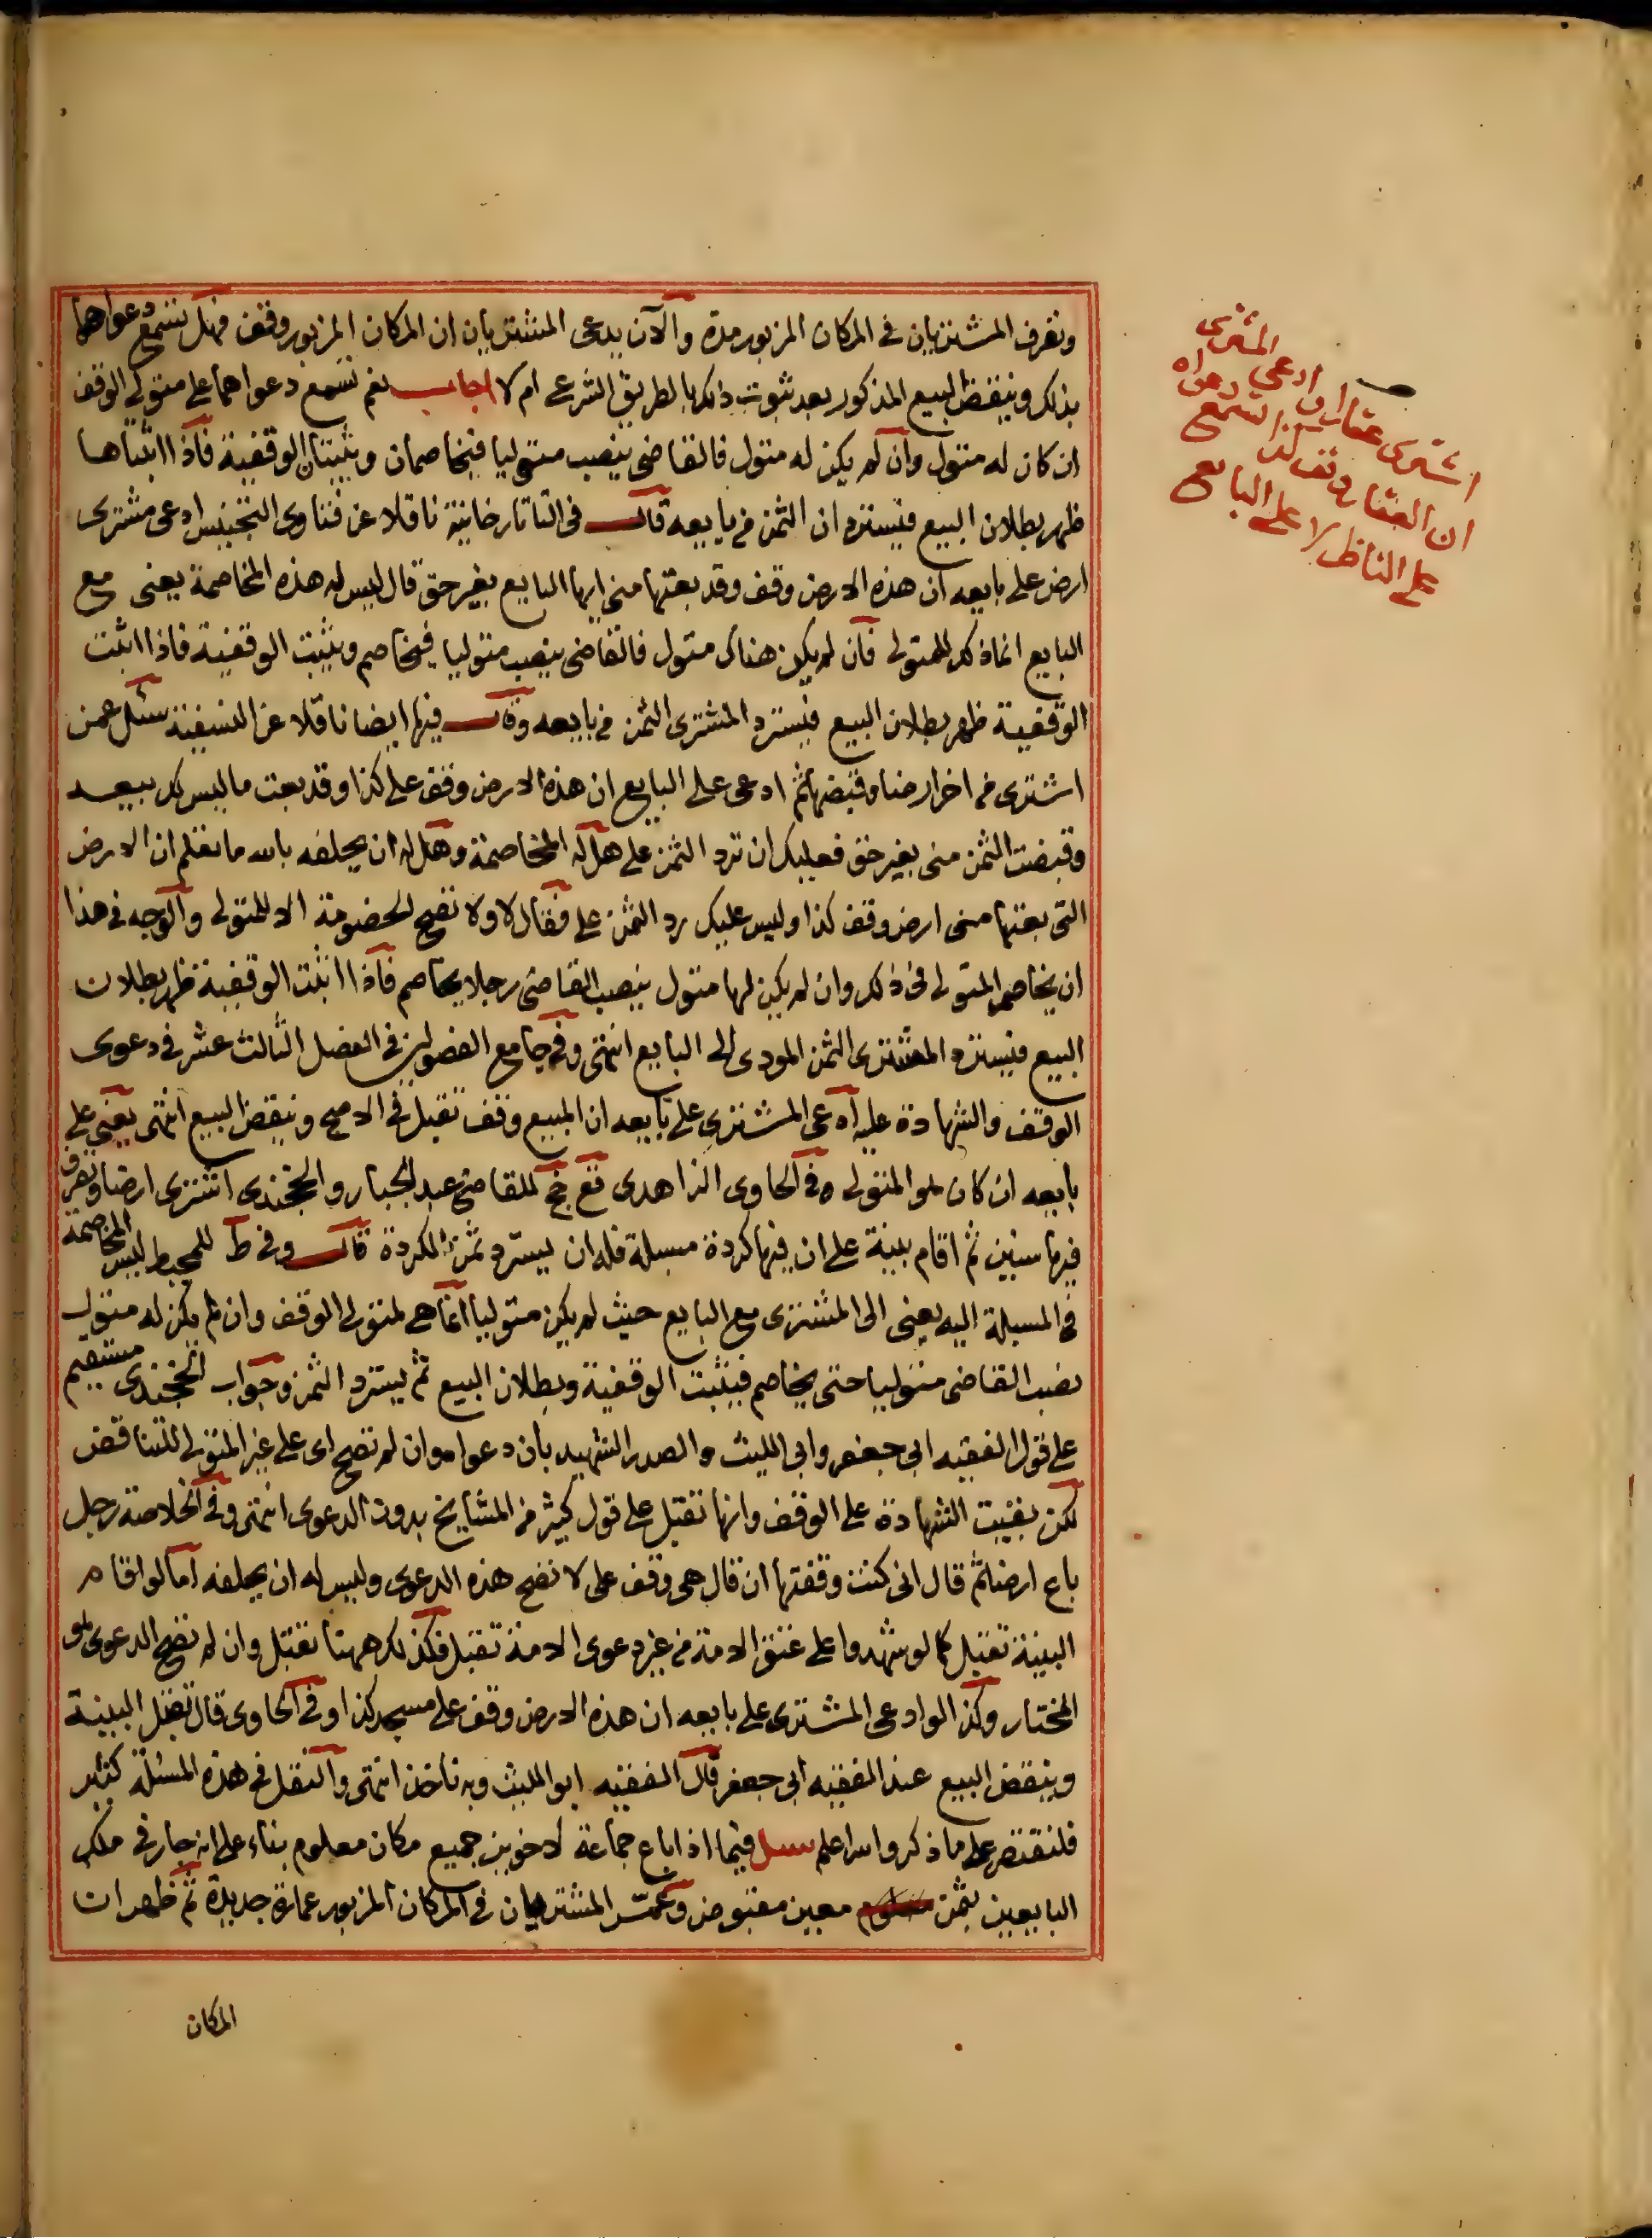 وتصرف المشتريان في المكان المزبور مدة والآن يدعى المشتريان ان المكان المزبور وقف فهل تسمع دعواهما
بذلك وينقض البيع المذكور بعد ثبوت ذلك بالطريق الشرعى ام لا اجاب نعم تسمع دعواهما على متولى الوقف
ان كان له متول وان لم يكن له متول فالقاضى ينصب متوليا فيخاصمان ويثبتان الوقفية فاذا اثبتاها
ظهر بطلان البيع فيستردان الثمن من بايعه قال فى التاتارخانية ناقلا عن فتاوى التجنيس ادعى مشترى
ارض على بايعه ان هذه الارض وقف وقد بعتها منى ايها البايع بغير حق قال ليس له هذه المخاصمة يعنى مع
البايع انما ذلك للمتولى فان لم يكن هناك متول فالقاضى ينصب متوليا فيخاصم ويثبت الوقفية فاذا اثبت
الوقفية ظهر بطلان البيع فيسترد المشترى الثمن من بايعه وقال فيها ايضا ناقلا عن النسفية سئل عمن
اشترى من اخر ارضا وقبضها ثم ادعى على البايع ان هذه الارض وقف على كذا وقد بعت ما ليس لك بيعه
وقبضت الثمن منى بغير حق فعليك ان ترد الثمن على هل له المخاصمة وهل له ان يحلفه بالله ما تعلم ان الارض
التى بعتها منى ارض وقف كذا وليس عليك رد الثمن على فقال لا ولا تصح الخصومة الا للمتولى والوجه فى هذا
ان يخاصم المتولى فى ذلك وان لم يكن لها متول ينصب القاضى رجلا يخاصم فاذا اثبت الوقفية ظهر بطلان
البيع فيسترد المشترى الثمن المودى الى البايع انتهى وفى جامع الفصولين فى الفصل الثالث عشر فى دعوى
الوقف والشهادة عليه ادعى المشترى على بايعه ان المبيع وقف تقبل فى الاصح وينقض البيع انتهى يعنى على
بايعه ان كان هو المتولى وفى الحاوى الزاهدى قع خج للقاضى عبد الجبار والخجندى اشترى ارضا وتصرف
فيها سنين ثم اقام بينة على ان فيها كردة مسبلة فله ان يسترد ثمن الكردة قال وفى ط للمحيط ليس المخاصمة
فى المسبلة اليه يعنى الى المشترى مع البايع حيث لم يكن متوليا انما هى لمتولى الوقف وان لم يكن له متول
نصب القاضى متوليا حتى يخاصم فيثبت الوقفية وبطلان البيع ثم يسترد الثمن وجواب الخجندى مستقيم
على قول الفقيه ابى جعفر وابى الليث والصدر الشهيد بان دعواه وان لم تصح اى على غير المتولى للتناقض
لكن بقيت الشهادة على الوقف وانها تقبل على قول كثير من المشايخ بدون الدعوى انتهى وفى الخلاصة رجل
باع ارضا ثم قال انى كنت وقفتها ان قال هى وقف على لا تصح هذه الدعوى وليس له ان يحلفه اما لو اقام
البينة تقبل كما لو شهدوا على عتق الامة من غير دعوى الامة تقبل فكذلك ههنا تقبل وان لم تصح الدعوى هو
المختار وكذا لو ادعى المشترى على بايعه ان هذه الارض وقف على مسجد كذا وفى الحاوى قال تقبل البينة
وينقض البيع عند الفقيه ابى جعفر قال الفقيه ابو الليث وبه ناخذ انتهى والنقل فى هذه المسئلة كثير
فلنقتصر على ما ذكر والله اعلم سئل فيما اذا باع جماعة لاخوين جميع مكان معلوم بناء على انه جار فى ملك
البايعين بثمن معين مقبوض وعمّر المشتريان فى المكان المزبور عمارة جديدة ثم ظهر ان
المكان
اشترى عقارا وادعى المشترى
ان العقار وقف لله تسمع دعواه
على الناظر لا على البايع